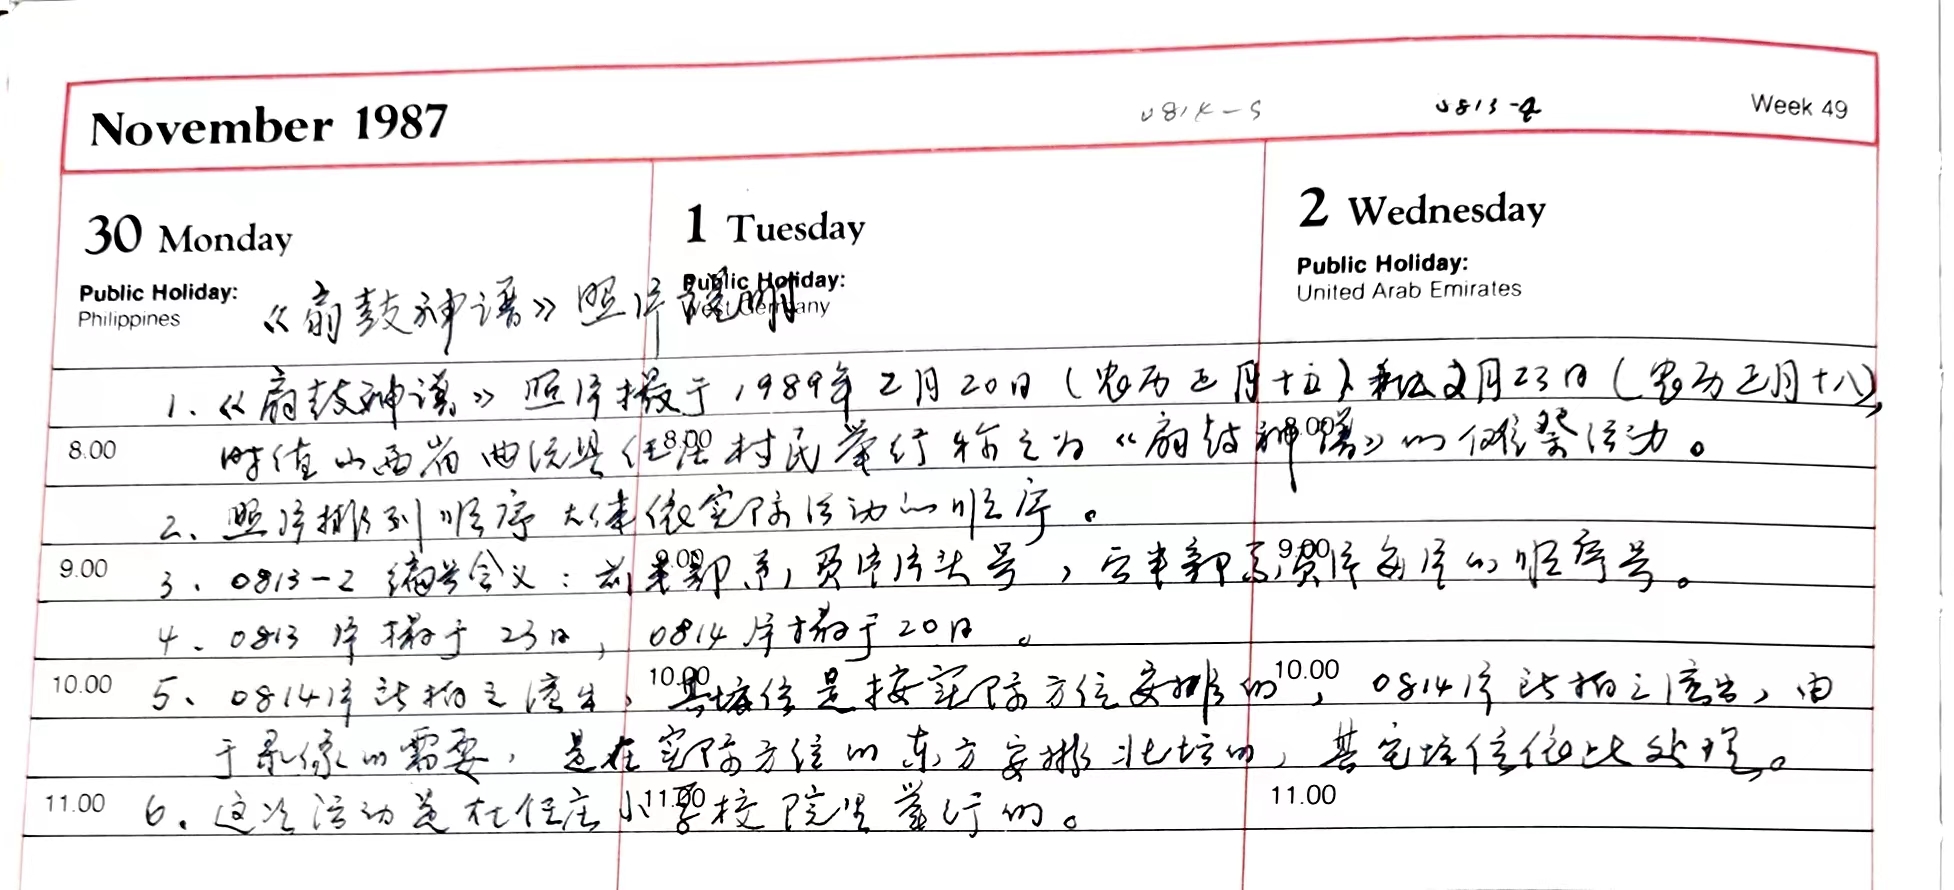 November 1987
0814-5
0813-2
Week 49
30 Monday
Public Holiday:
Philippines
1 Tuesday
Public Holiday:
West Germany
2 Wednesday
Public Holiday:
United Arab Emirates
《扇鼓神谱》照片说明
1、《扇鼓神谱》照片摄于1989年2月20日(农历正月十五)和2月23日(农历正月十八),
8.00 8.00 8.00
时值山西省曲沃县任庄村民举行称之为《扇鼓神谱》的傩祭活动。
2、照片排列顺序大体依实际活动的顺序。
9.00 9.00 9.00
3、0813-2编号含义:前半部系负片片头号,后半部系负片每片的顺序号。
4、0813片摄于23日,0814片摄于20日。
10.00 10.00 10.00
5、0814片所拍之演出,其坛位是按实际方位安排的,0814片所拍之演出,由
于录像的需要,是在实际方位的东方安排北坛的,其它坛位依此处理。
11.00 11.00 11.00
6、这次活动是在任庄小学校院里举行的。